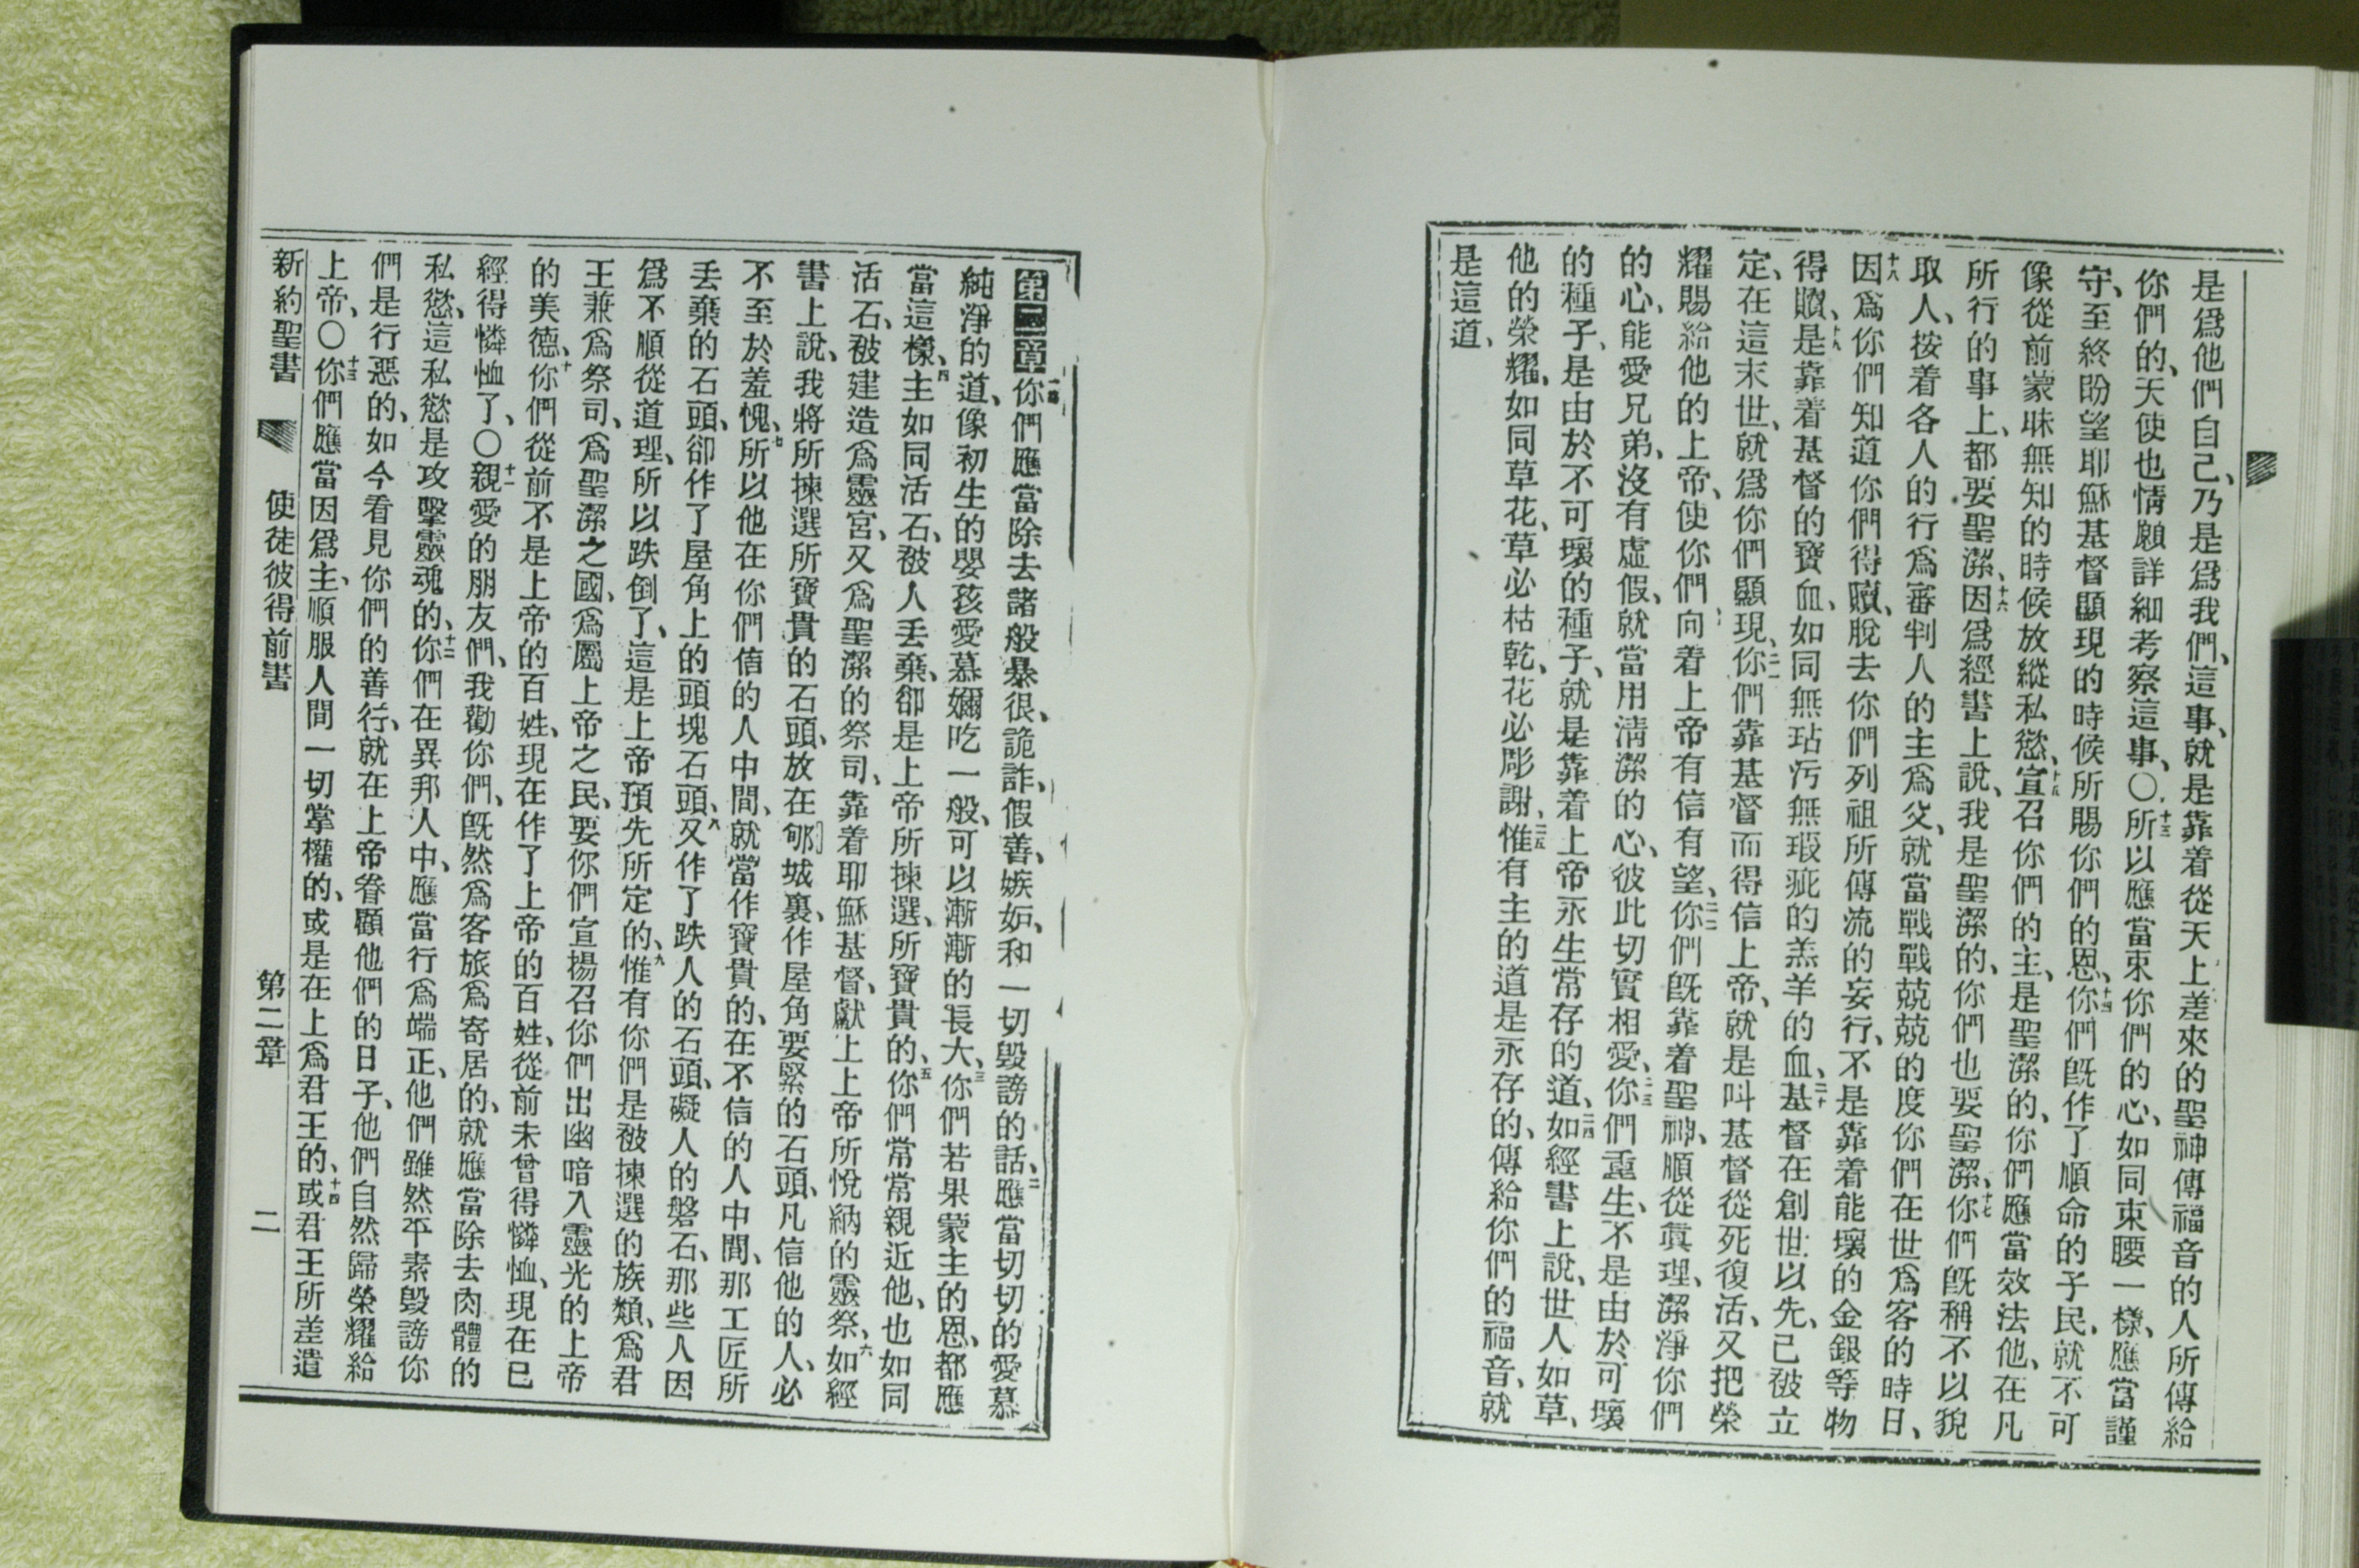 是爲他們自己、乃是爲我們、這事、就是靠着從天上差來的聖神傳福音的人所傳給
你們的、天使也情願詳細考察這事、〇十三所以應當束你們的心、如同束腰一樣、應當謹
守、至終盼望耶穌基督顯現的時候所賜你們的恩、十四你們旣作了順命的子民、就不可
像從前蒙昧無知的時候放縱私慾、十五宜召你們的主、是聖潔的、你們應當效法他、在凡
所行的事上、都要聖潔、十六因爲經書上說、我是聖潔的、你們也要聖潔、十七你們旣稱不以貌
取人、按着各人的行爲審判人的主爲父、就當戰戰兢兢的度你們在世爲客的時日、
十八因爲你們知道你們得贖、脫去你們列祖所傳流的妄行、不是靠着能壞的金銀等物
得贖、十九是靠着基督的寶血、如同無玷污無瑕疵的羔羊的血、二十基督在創世以先、已被立
定、在這末世、就爲你們顯現、二一你們靠基督而得信上帝、就是叫基督從死復活、又把榮
耀賜給他的上帝、使你們向着上帝有信有望、二二你們旣靠着聖神、順從眞理、潔淨你們
的心、能愛兄弟、沒有虛假、就當用淸潔的心、彼此切實相愛、二三你們重生、不是由於可壞
的種子、是由於不可壞的種子、就是靠着上帝永生常存的道、二四如經書上說、世人如草、
他的榮耀、如同草花、草必枯乾、花必彫謝、二五惟有主的道是永存的、傳給你們的福音、就
是這道、
第二章 一你們應當除去諸般暴很、詭詐、假善、嫉妒、和一切毀謗的話、二應當切切的愛慕
純淨的道、像初生的嬰孩愛慕嬭吃一般、可以漸漸的長大、三你們若果蒙主的恩、都應
當這樣、四主如同活石、被人丢棄、卻是上帝所揀選、所寶貴的、五你們常常親近他、也如同
活石、被建造爲靈宮、又爲聖潔的祭司、靠着耶穌基督、獻上上帝所悅納的靈祭、六如經
書上說、我將所揀選所寶貴的石頭、放在郇城裏、作屋角要緊的石頭、凡信他的人、必
不至於羞愧、七所以他在你們信的人中間、就當作寶貴的、在不信的人中間、那工匠所
丢棄的石頭、卻作了屋角上的頭塊石頭、八又作了跌人的石頭、礙人的磐石、那些人因
爲不順從道理、所以跌倒了、這是上帝預先所定的、九惟有你們是被揀選的族類、爲君
王兼爲祭司、爲聖潔之國、爲屬上帝之民、要你們宣揚召你們出幽暗入靈光的上帝
的美德、十你們從前不是上帝的百姓、現在作了上帝的百姓、從前未曾得憐恤、現在已
經得憐恤了、〇十一親愛的朋友們、我勸你們、旣然爲客旅、爲寄居的、就應當除去肉體的
私慾、這私慾是攻擊靈魂的、十二你們在異邦人中、應當行爲端正、他們雖然平素毀謗你
們是行惡的、如今看見你們的善行、就在上帝眷顧他們的日子、他們自然歸榮耀給
上帝、〇十三你們應當因爲主、順服人間一切掌權的、或是在上爲君王的、十四或君王所差遣
新約聖書 使徒彼得前書 第二章 二